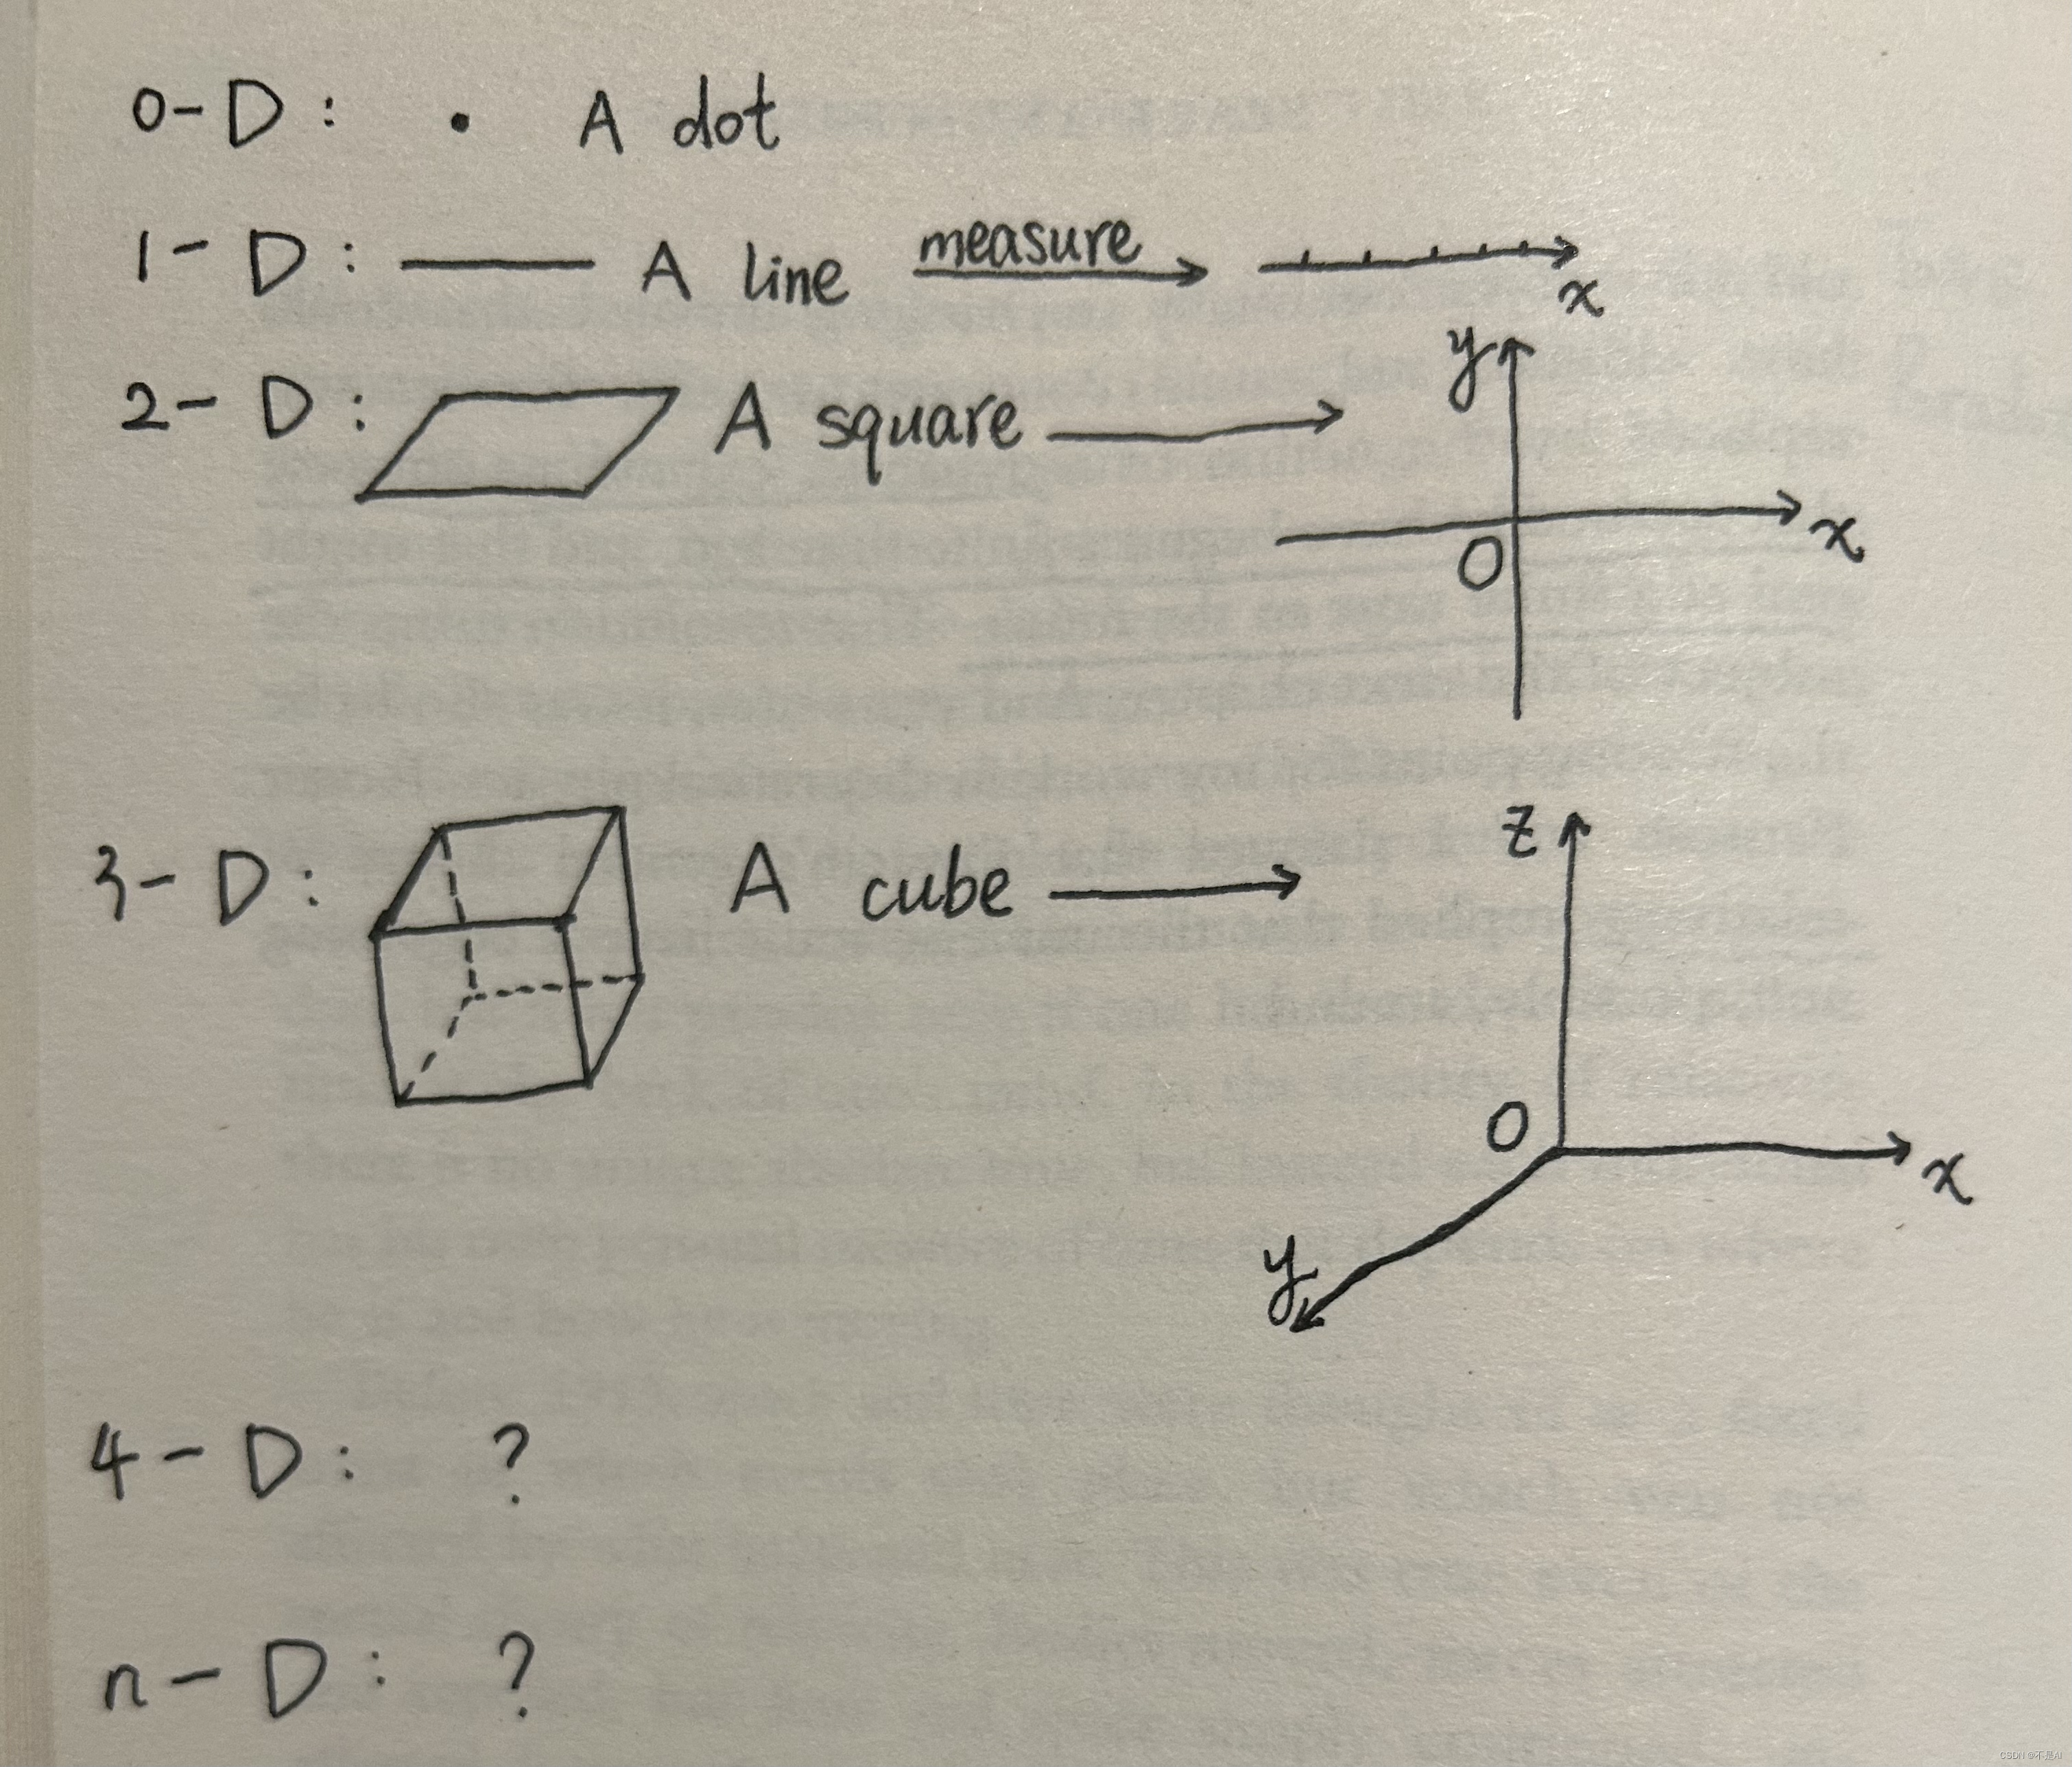 0-D: A dot
1-D: A line measure x
2-D: A square y
O x
3-D: A cube z
O x
y
4-D: ?
n-D: ?
CSDN @不是AI